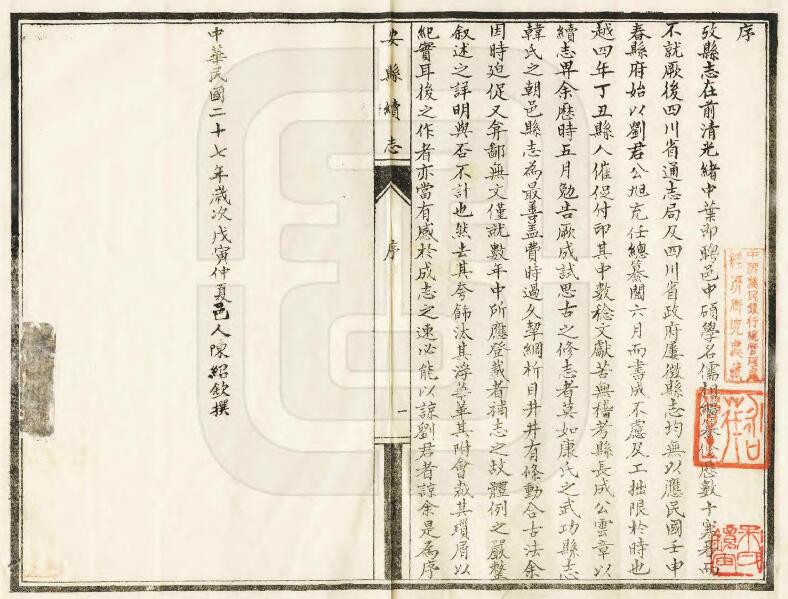 序
攷縣志在前清光緒中葉即聘邑中碩學名儒相繼修歷數十寒暑而
不就厥後四川省通志局及四川省政府屢徵縣志均無以應民國壬申
春縣府始以劉君公旭充任總纂閱六月而書成不慮及工拙限於時也
越四年丁丑縣人催促付印其中數稔文獻苦無稽考縣長成公雲章以
續志畀余歷時五月勉告厥成試思古之修志者莫如康氏之武功縣志
韓氏之朝邑縣志為最善盖費時過久挈綱析目井井有條動合古法余
因時迫促又弇鄙無文僅就數年中所應登載者補志之故體例之嚴整
叙述之詳明與否不計也然去其夸飾汰其浮華革其附會裁其瑣屑以
紀實耳後之作者亦當有感於成志之速必能以諒劉君者諒余是為序
安縣續志
序
一
中華民國二十七年歲次戊寅仲夏邑人陳紹欽撰